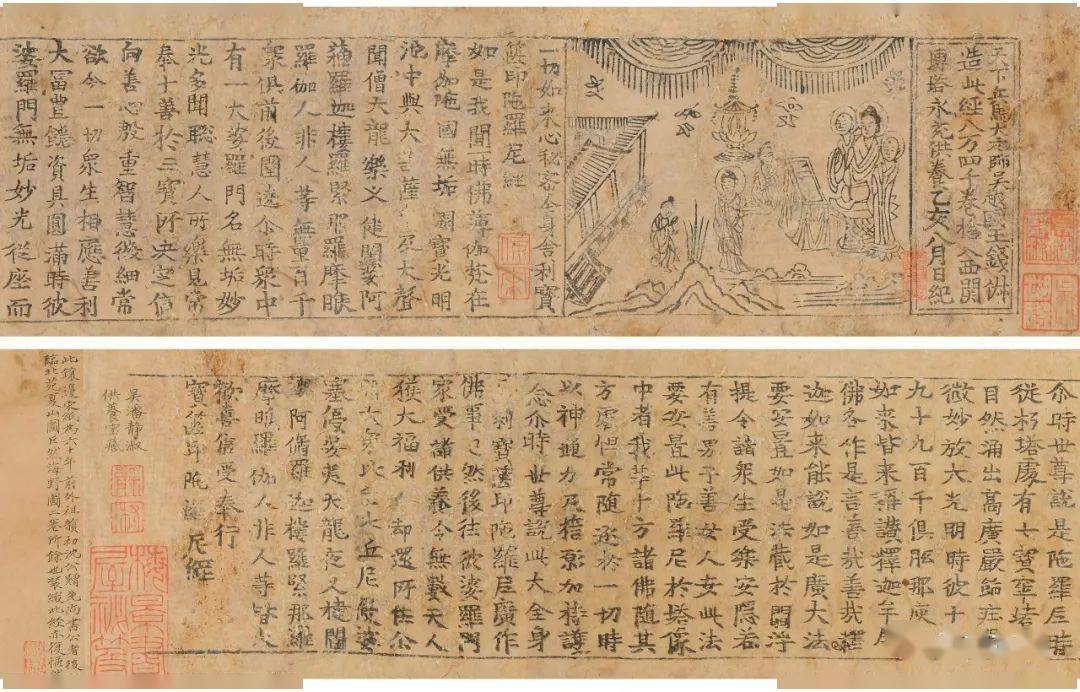 天下兵馬大元帥吳越國王錢俶
造此經八万四千卷捨入西關
塼塔永充供養乙亥八月日紀
一切如來心秘密全身舍利寶
篋印陀羅尼經
如是我聞一時佛薄伽梵在
摩伽陁國無垢園寶光明
池中與大菩薩衆及大聲
聞僧天龍藥叉健闥婆阿
蘓羅迦樓羅緊那羅摩睺
羅伽人非人等無量百千
衆俱前後圍遶尒時衆中
有一大婆羅門名無垢妙
光多聞聡慧人所樂見常
奉十善於三寶所决定信
向善心殷重智慧微細常
欲令一切衆生相應善利
大冨豊饒資具圓滿時彼
婆羅門無垢妙光從座而
尒時世尊說是陁羅尼時
從朽塔處有七寶窣堵
自然涌出高廣嚴飾庄
微妙放大光明時彼十
九十九百千俱胝那庾
如來皆来稱讃釋迦牟尼
佛各作是言善哉善哉釋
迦如來能說如是廣大法
要安置如是法藏於閻浮
提令諸衆生受樂安隱若
有善男子善女人安此法
要安置此陁羅尼於塔像
中者我等十方諸佛隨其
方處恒常隨逐於一切時
以神通力及誓願加持護
念尒時世尊說此大全身
舎利寶篋印陁羅尼廣作
佛事已然後往彼婆羅門
家受諸供養令無數天人
獲大福利却還所住
尒時大衆比丘比丘尼優婆
塞優婆夷天龍夜叉揵闥
婆阿脩羅迦樓羅緊那羅
摩睺羅伽人非人等皆大
歡喜信受奉行
寶篋印陁羅尼經
吳潘靜淑
供養宝藏
梅景書
屋祕笈